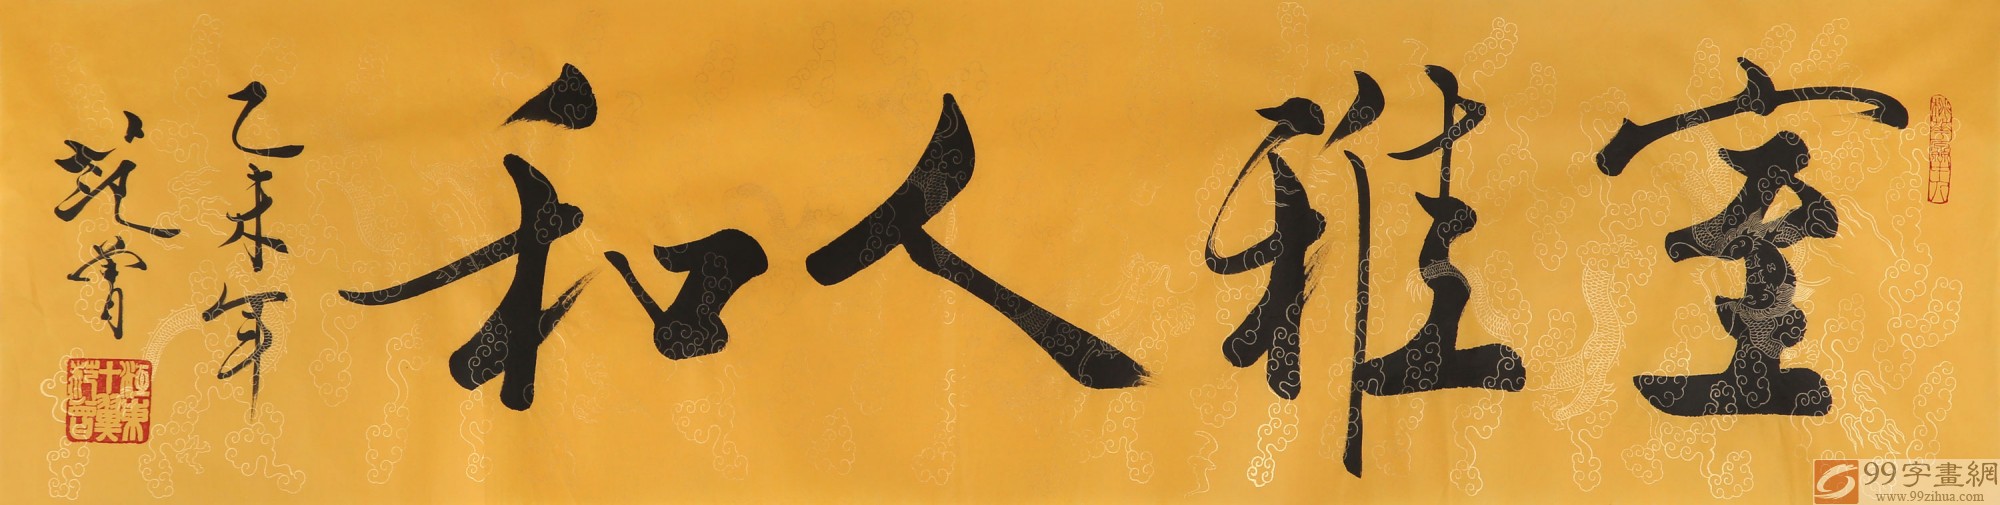 室雅人和
乙未年
范曾
99字畫網
www.99zihua.com